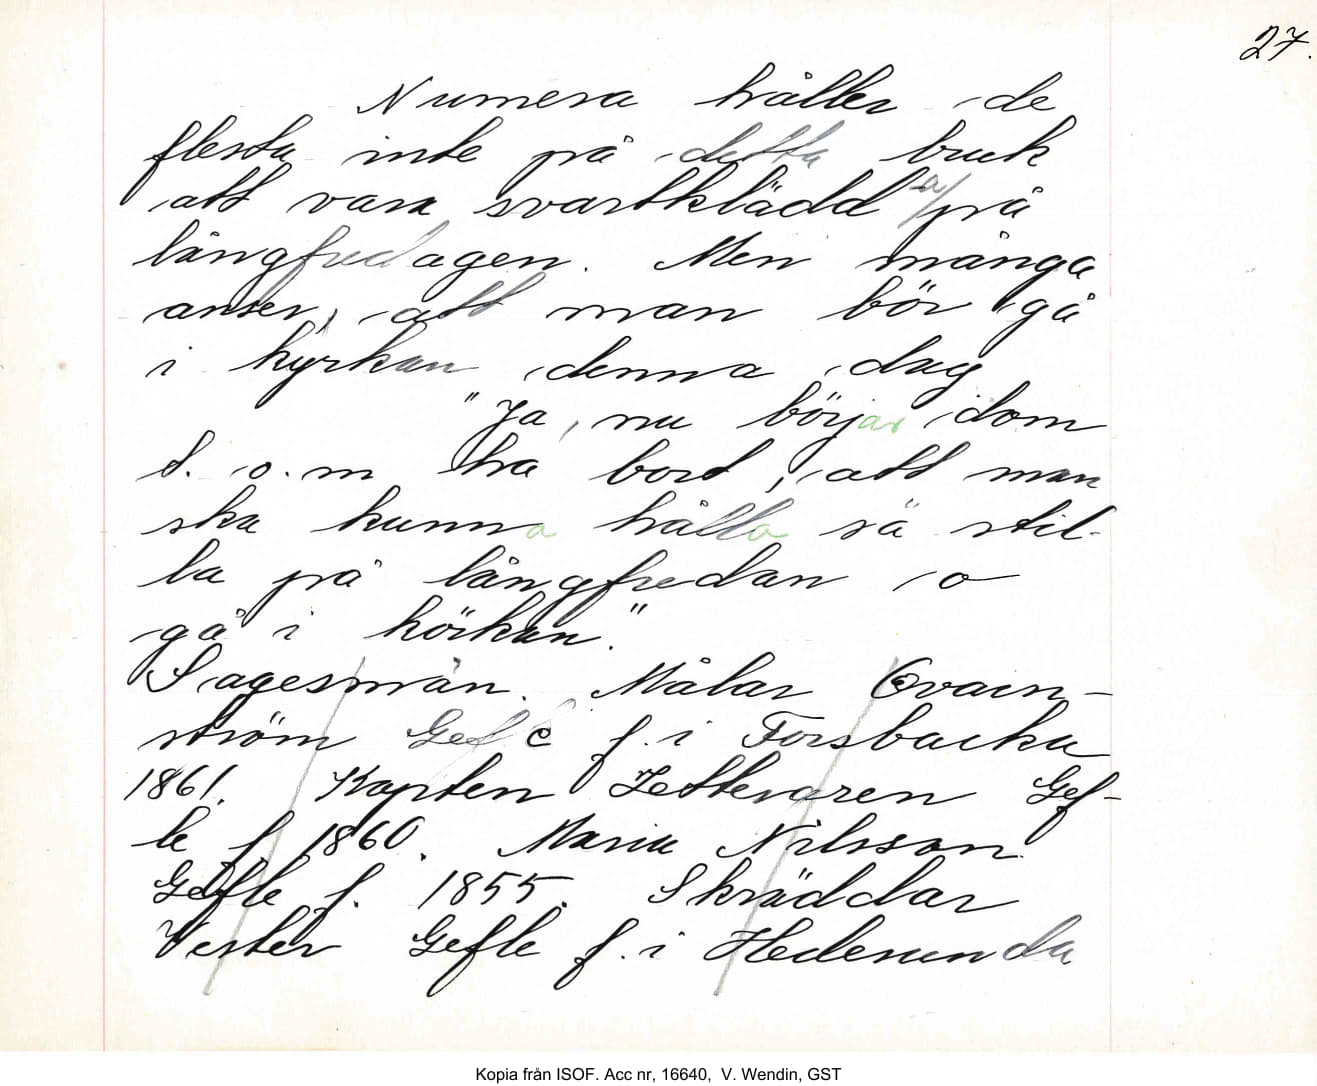 27.
Numera håller de
flesta inte på detta bruk
att vara svartklädd a/ på
långfredagen. Men många
anser, att man bör gå
i kyrkan denna dag
"Ja, nu börjar dom
t. o. m ha bort, att man
ska kunna hålla sä stil-
la på långfredan o
gå i körkan."
Sagesmän. Målar Qvarn-
ström Gefle f. i Forsbacka
1861. Kapten Zettergren Gef-
le f. 1860. Maria Nilsson
Gefle f. 1855. Skräddar
Vester Gefle f. i Hedesunda
Kopia från ISOF. Acc nr, 16640, V. Wendin, GST